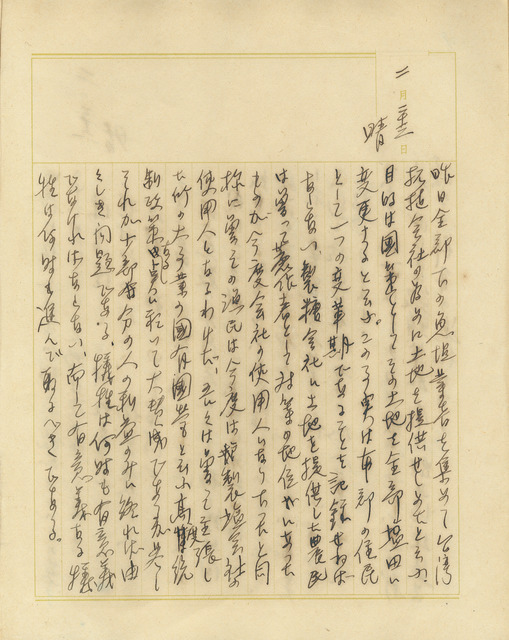 二月二十三日
晴
昨日全部下の魚塭業者を集めて台湾
拓殖会社の為めに土地を提供せしめたと云ふ、
目的は国策としてその土地を全部塩田に
変更すると云ふ。この事実は本郡の住民
として一つの変革期であることを記録せねば
ならない、製糖会社に土地を提供した農民
は曽つて蔗作者として対等の地位がにあつた
ものが今度会社の使用人になつたと同
様に曽つての漁民は今度は製塩会社の
使用人となるわけだ、吾々は曽て主張し
た所の大事業の国有国営と云ふ高度統
制政策に於いて大賛成であるが若し
それが少部分の人の利益のみに流れば由
々しき問題である、犠牲は何時も有意義
でなければならない、而して有意義ある犠
牲は何時も進んで為るべきである。